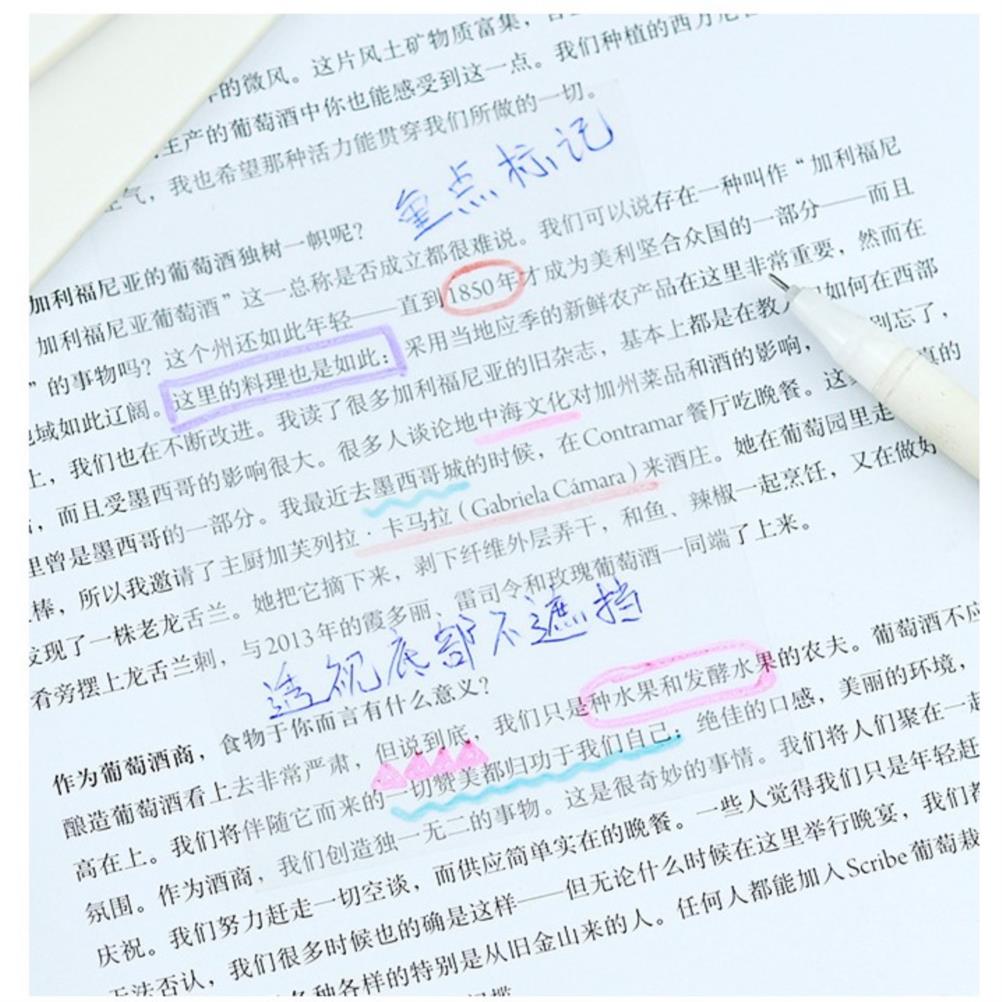 的微风。这片风土矿物质富集，
生产的葡萄酒中你也能感受到这一点。我们种植的西方
气，我也希望那种活力能贯穿我们所做的一切。
重点标记
加利福尼亚的葡萄酒独树一帜呢？
加利福尼亚葡萄酒”这一总称是否成立都很难说。我们可以说存在一种叫作“加利福尼
”的事物吗？这个州还如此年轻——直到1850年才成为美利坚合众国的一部分——而且
域如此辽阔。这里的料理也是如此：采用当地应季的新鲜农产品在这里非常重要，然而在
上，我们也在不断改进。我读了很多加利福尼亚的旧杂志，基本上都是在教人们如何在西部
，而且受墨西哥的影响很大。很多人谈论地中海文化对加州菜品和酒的影响，别忘了，
里曾是墨西哥的一部分。我最近去墨西哥城的时候，在Contramar餐厅吃晚餐。这真的
棒，所以我邀请了主厨加芙列拉·卡马拉（Gabriela Cámara）来酒庄。她在葡萄园里走
发现了一株老龙舌兰。她把它摘下来，剥下纤维外层弄干，和鱼、辣椒一起烹饪，又在做好
看旁摆上龙舌兰刺，与2013年的霞多丽、雷司令和玫瑰葡萄酒一同端了上来。
透视底部不遮挡
作为葡萄酒商，食物于你而言有什么意义？
酿造葡萄酒看上去非常严肃，但说到底，我们只是种水果和发酵水果的农夫。葡萄酒不应
高在上。我们将伴随它而来的一切赞美都归功于我们自己：绝佳的口感，美丽的环境，
氛围。作为酒商，我们创造独一无二的事物。这是很奇妙的事情。我们将人们聚在一起
庆祝。我们努力赶走一切空谈，而供应简单实在的晚餐。一些人觉得我们只是年轻赶
无法否认，我们很多时候也的确是这样——但无论什么时候在这里举行晚宴，我们都
各种各样的特别是从旧金山来的人。任何人都能加入Scribe葡萄栽